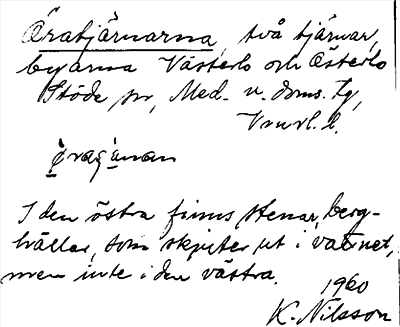 Äratjärnarna, två tjärnar,
byarna Västerlo och Österlo
Stöde sn, Med. n. doms. tg,
Vnrl. l.
I den östra finns stenar, berg-
hällar, som skjuter ut i vattnet,
men inte i den västra.
1960
K. Nilsson